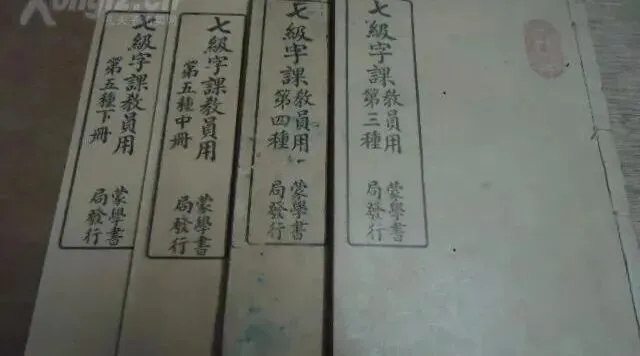 七級字課
教員用
第三種
蒙學書
局發行
七級字課
教員用
第四種
蒙學書
局發行
七級字課教員用
第五種中冊
蒙學書
局發行
七級字課教員用
第五種下冊
蒙學書
局發行